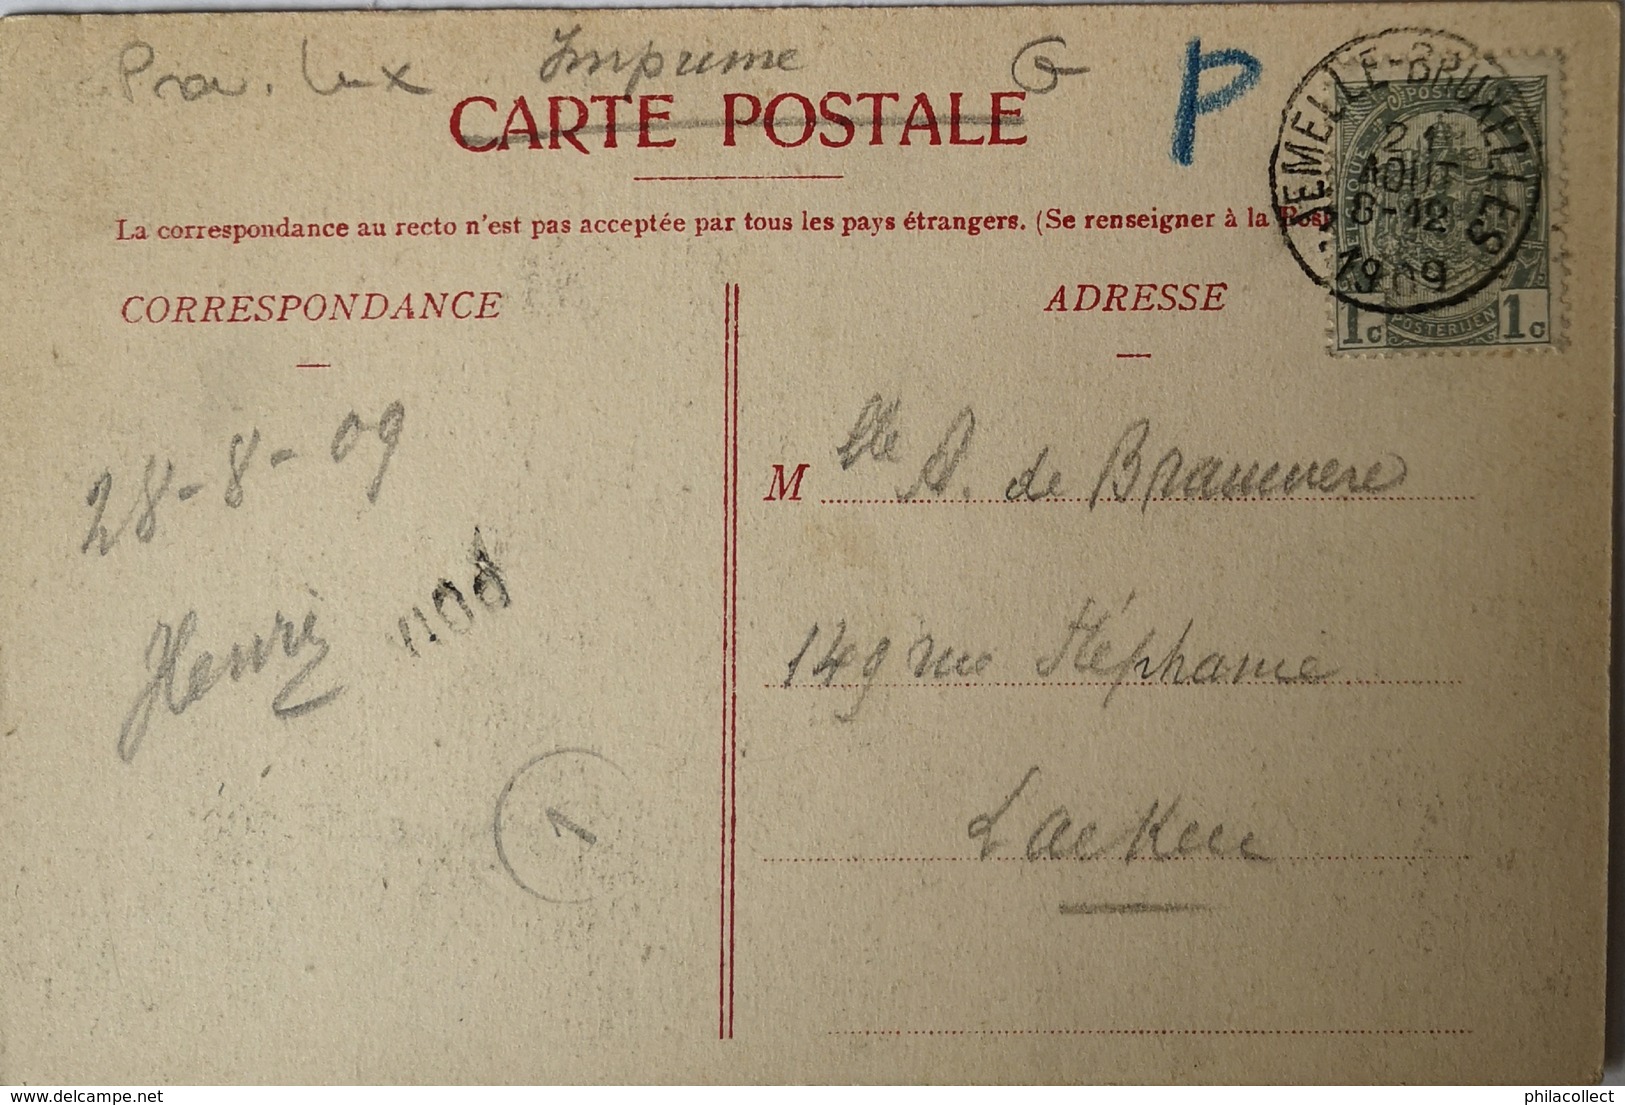 Prov. Lux Imprimé G P
CARTE POSTALE
La correspondance au recto n'est pas acceptée par tous les pays étrangers. (Se renseigner à la Post
CORRESPONDANCE
ADRESSE
POSTES
POSTERIJEN
1c 1c
GEMELLE-BRUXELLES
21
AOUT
8-12
1909
28-8-09
Henri
1
M lle A. de
149 rue Stéphanie
Laeken
delcampe.net
philacollect